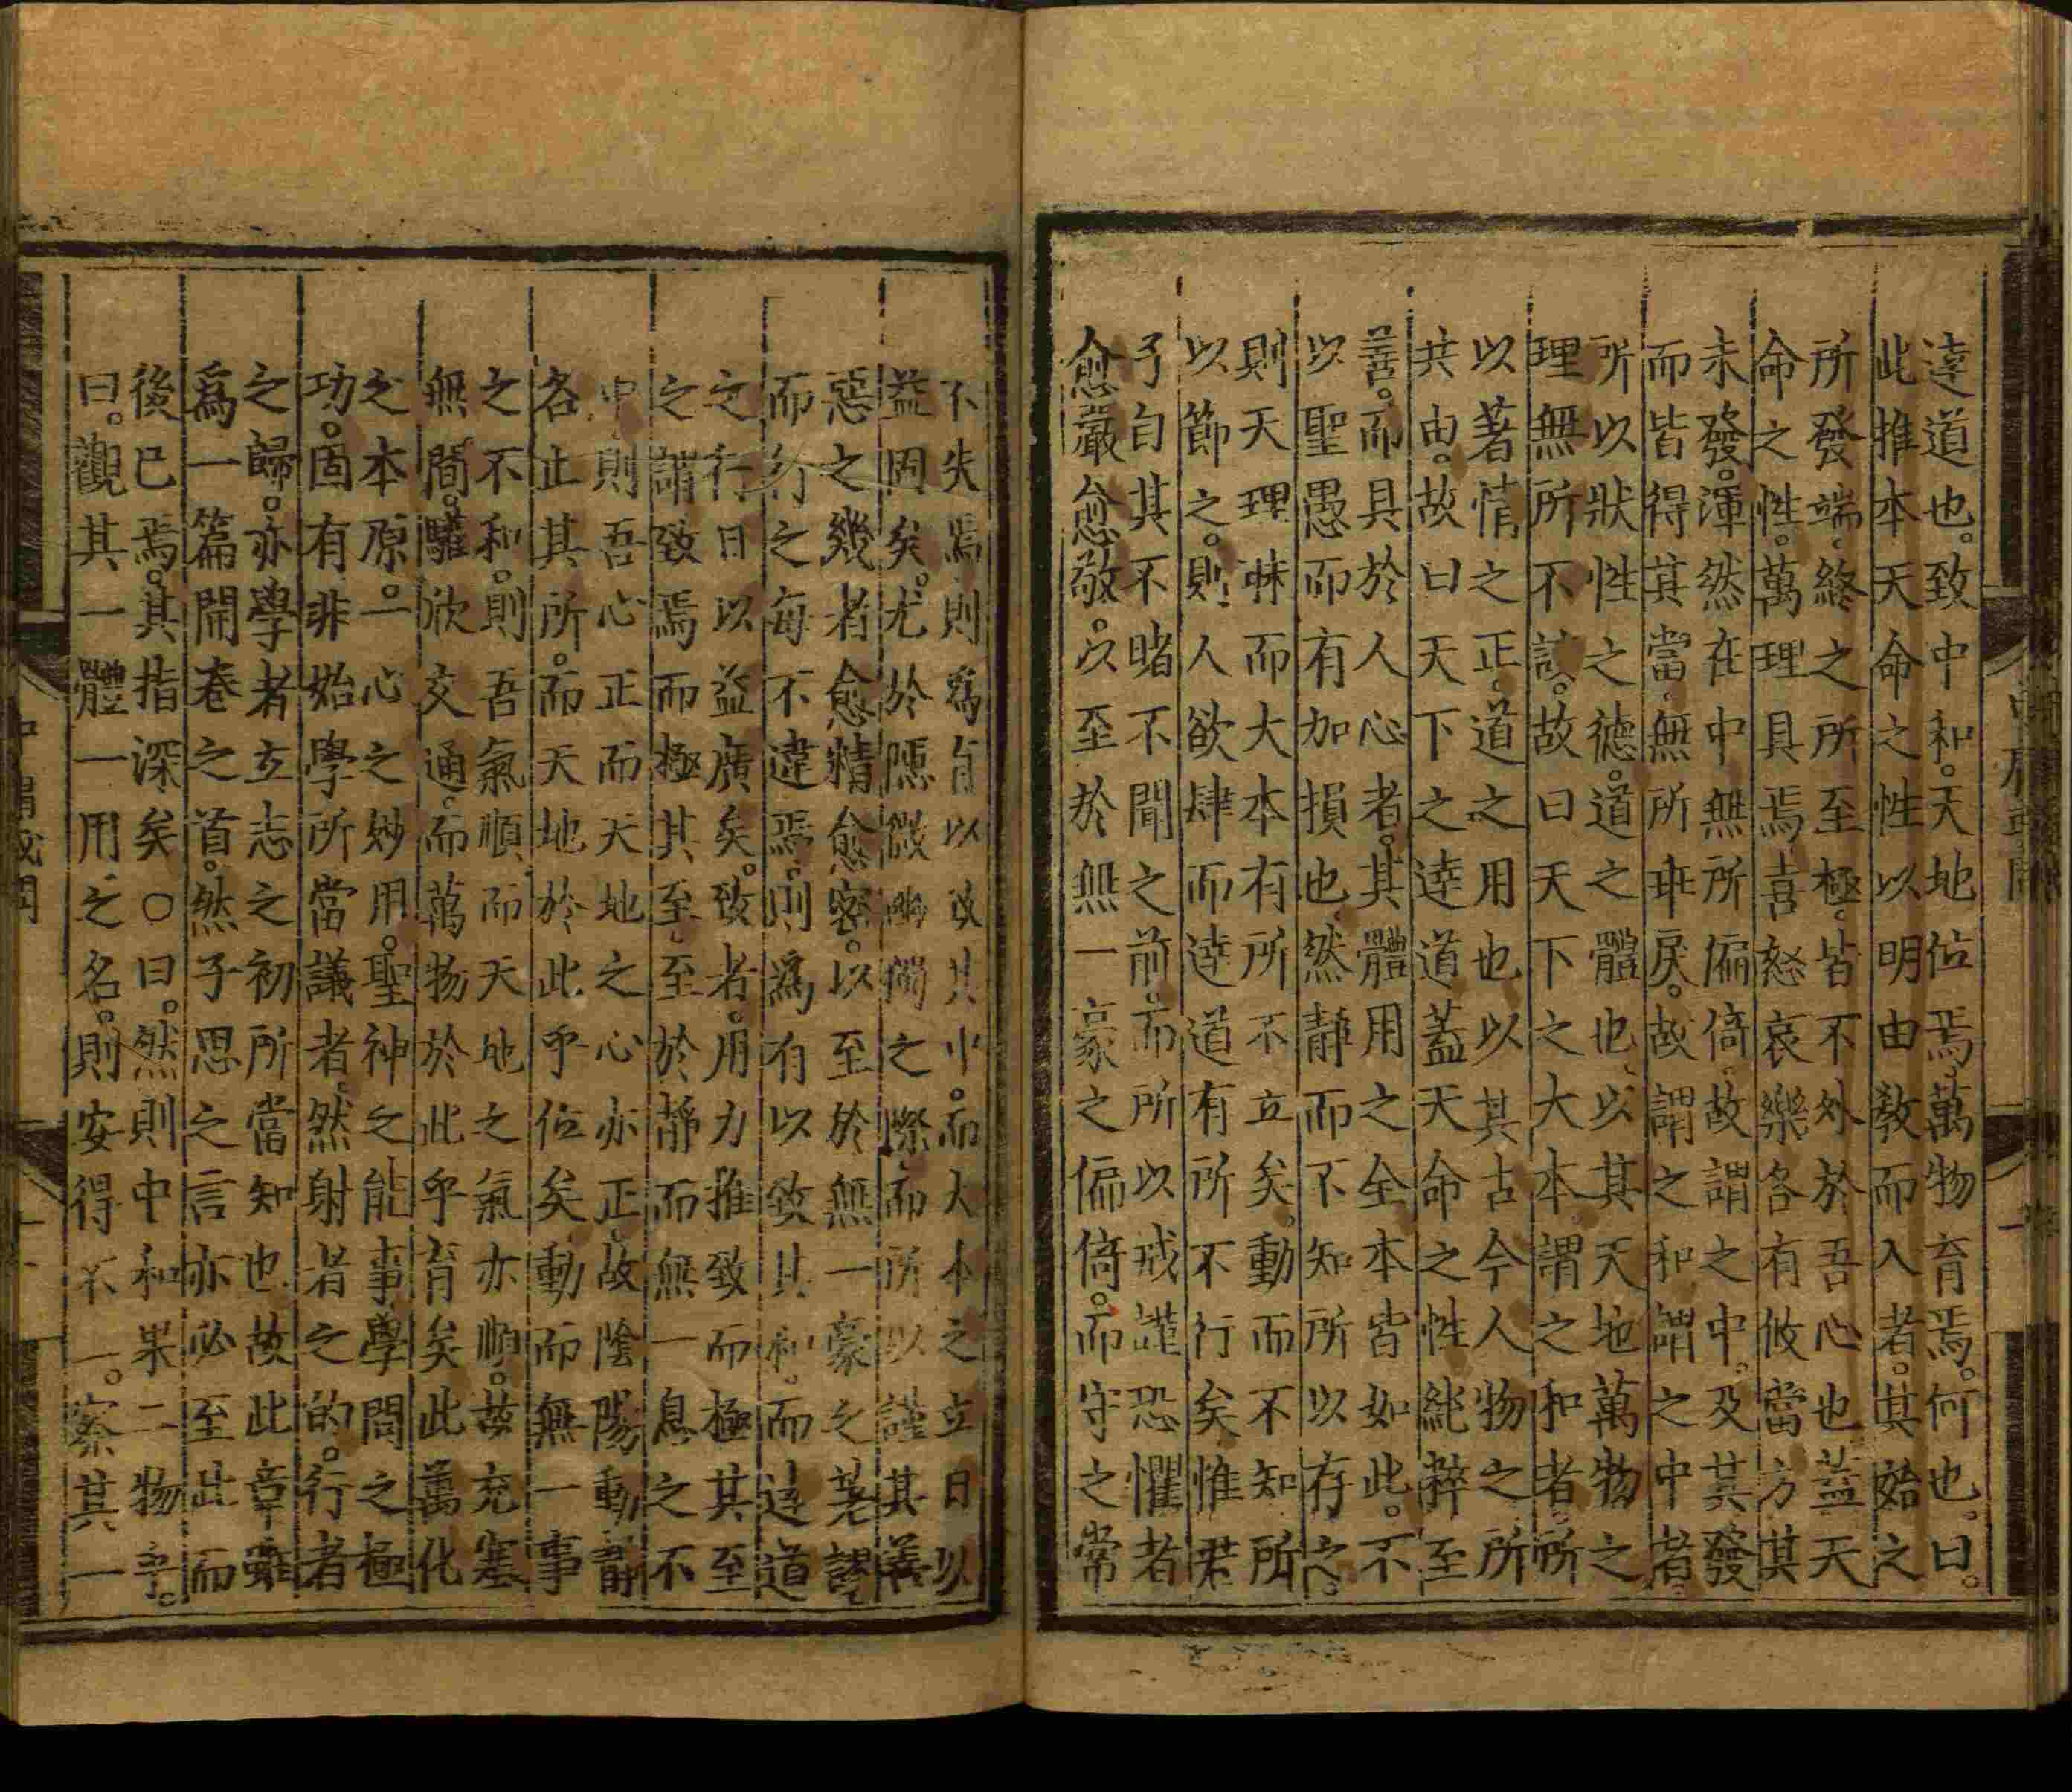 達道也。致中和。天地位焉萬物育焉。何也。曰。
此推本天命之性以明由敎而入者。其始之
所發端、終之所至極、皆不外於吾心也蓋天
命之性。萬理具焉喜怒哀樂各有攸當方其
未發。渾然在中無所偏倚、故謂之中。及其發
而皆得其當、無所乖戾。故謂之和謂之中者、
所以狀性之德。道之體也、以其天地萬物之
理無所不該。故曰天下之大本謂之和者。所
以著情之正、道之用也以其古今人物之所
共由。故曰天下之達道蓋天命之性純粹至
善。而具於人心者。其體用之全本皆如此。不
以聖愚而有加損也、然靜而不知所以存之、
則天理昧而大本有所不立矣。動而不知所
以節之。則人欲肆而達道有所不行矣惟君
子自其不睹不聞之前而所以戒謹恐懼者
愈嚴愈敬。以至於無一豪之偏倚。而守之常
不失焉則爲有以致其中。而大本之立日以
益固矣。尤於隱微幽獨之際、而所以謹其善
惡之幾者愈精愈密。以至於無一豪之差謬
而行之每不違焉。則爲有以致其和。而達道
之行日以益廣矣。致者。用力推致而極其至
之謂致焉而極其至、至於靜而無一息之不
中則吾心正而天地之心亦正、故陰陽動靜
各止其所。而天地於此乎位矣動而無一事
之不和。則吾氣順而天地之氣亦順。故充塞
無間。驩欣交通。而萬物於此乎育矣此萬化
之本原。一心之妙用。聖神之能事學問之極
功。固有非始學所當議者、然射者之的。行者
之歸。亦學者立志之初所當知也故此章雖
爲一篇開卷之首。然子思之言亦必至此而
後已焉。其指深矣○曰。然則中和果二物乎。
曰。觀其一體一用之名。則安得不一。察其一
中庸或問